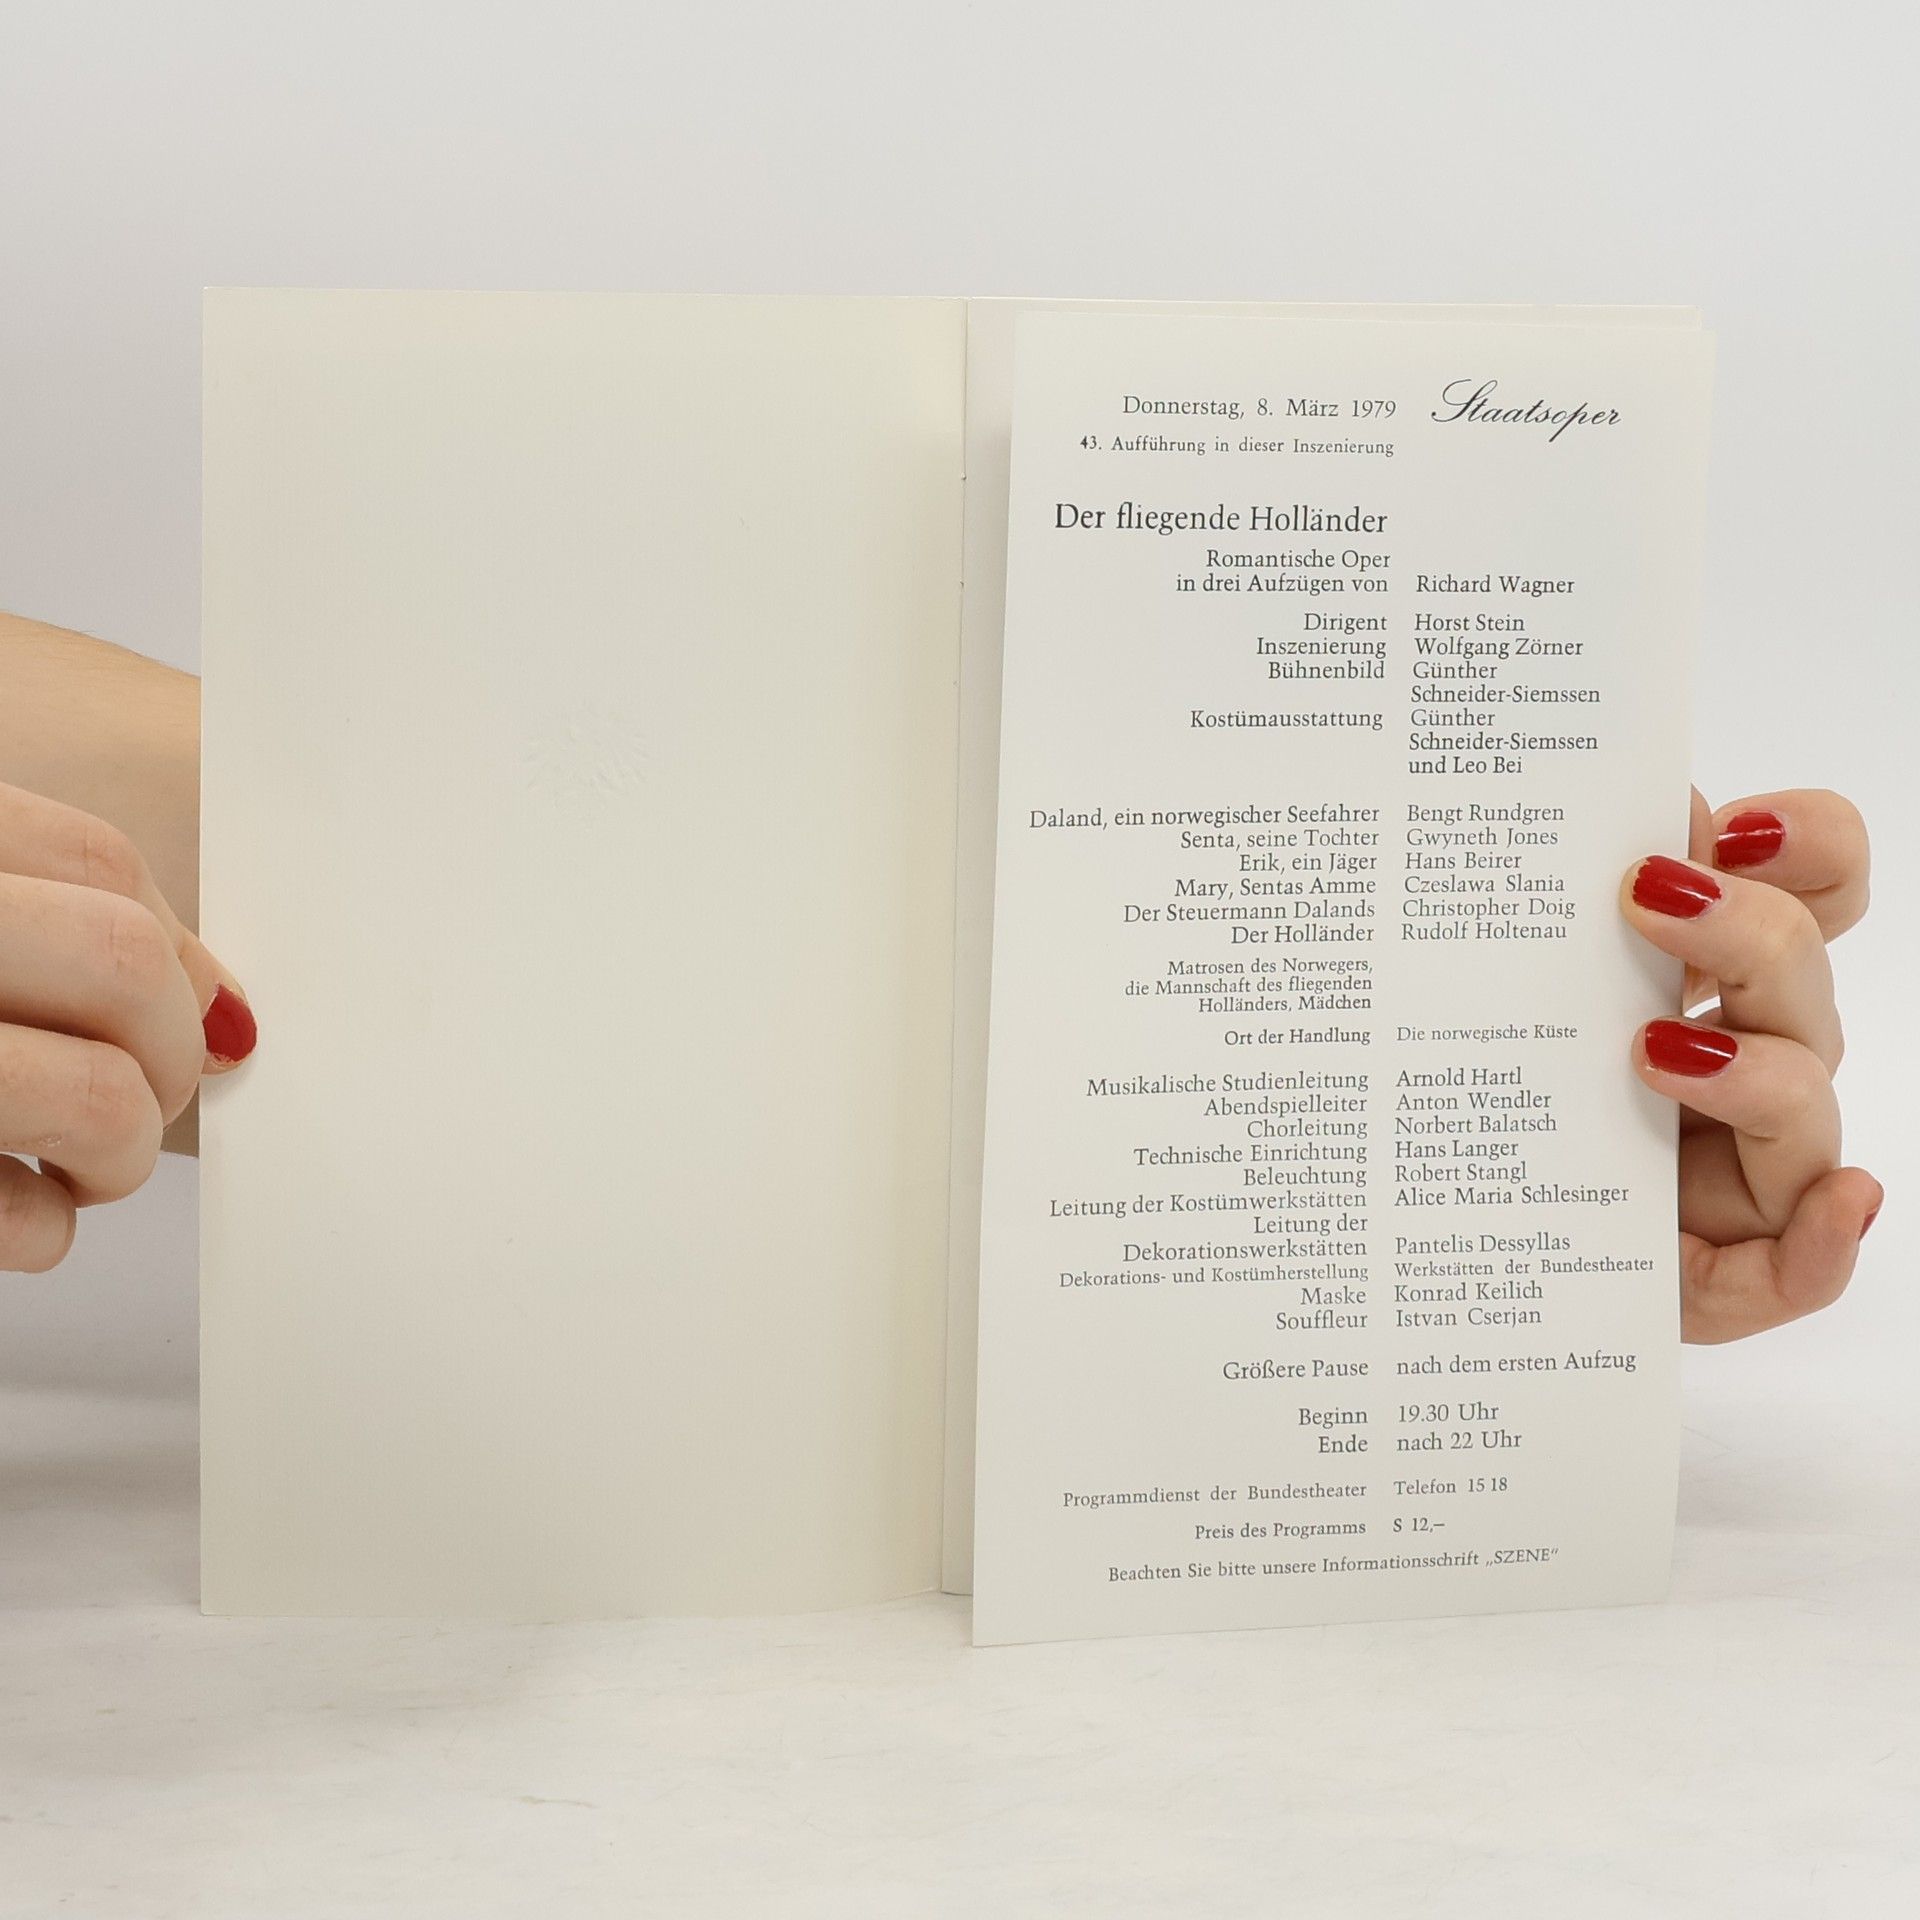 Donnerstag, 8. März 1979 Staatsoper
43. Aufführung in dieser Inszenierung
Der fliegende Holländer
Romantische Oper
in drei Aufzügen von Richard Wagner
Dirigent Horst Stein
Inszenierung Wolfgang Zörner
Bühnenbild Günther
Schneider-Siemssen
Kostümausstattung Günther
Schneider-Siemssen
und Leo Bei
Daland, ein norwegischer Seefahrer Bengt Rundgren
Senta, seine Tochter Gwyneth Jones
Erik, ein Jäger Hans Beirer
Mary, Sentas Amme Czeslawa Slania
Der Steuermann Dalands Christopher Doig
Der Holländer Rudolf Holtenau
Matrosen des Norwegers,
die Mannschaft des fliegenden
Holländers, Mädchen
Ort der Handlung Die norwegische Küste
Musikalische Studienleitung Arnold Hartl
Abendspielleiter Anton Wendler
Chorleitung Norbert Balatsch
Technische Einrichtung Hans Langer
Beleuchtung Robert Stangl
Leitung der Kostümwerkstätten Alice Maria Schlesinger
Leitung der
Dekorationswerkstätten Pantelis Dessyllas
Dekorations- und Kostümherstellung Werkstätten der Bundestheater
Maske Konrad Keilich
Souffleur Istvan Cserjan
Größere Pause nach dem ersten Aufzug
Beginn 19.30 Uhr
Ende nach 22 Uhr
Programmdienst der Bundestheater Telefon 15 18
Preis des Programms S 12,–
Beachten Sie bitte unsere Informationsschrift „SZENE“